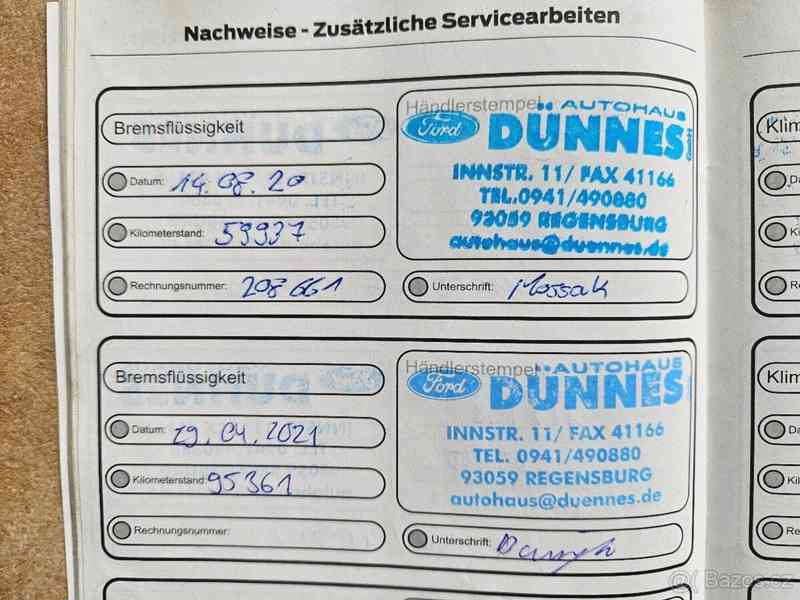 Nachweise - Zusätzliche Servicearbeiten
Bremsflüssigkeit
Datum: 14.08.20
Kilometerstand: 59937
Rechnungsnummer: 208661
Händlerstempel
AUTOHAUS
Ford DÜNNES
INNSTR. 11/ FAX 41166
TEL.0941/490880
93059 REGENSBURG
autohaus@duennes.de
Unterschrift: Mossak
Bremsflüssigkeit
Datum: 29.04.2021
Kilometerstand: 95361
Rechnungsnummer:
Händlerstempel
AUTOHAUS
Ford DÜNNES
INNSTR. 11/ FAX 41166
TEL. 0941/490880
93059 REGENSBURG
autohaus@duennes.de
Unterschrift:
Klim
Da
Ki
Re
Klim
Da
Kil
Re
Bazos.cz